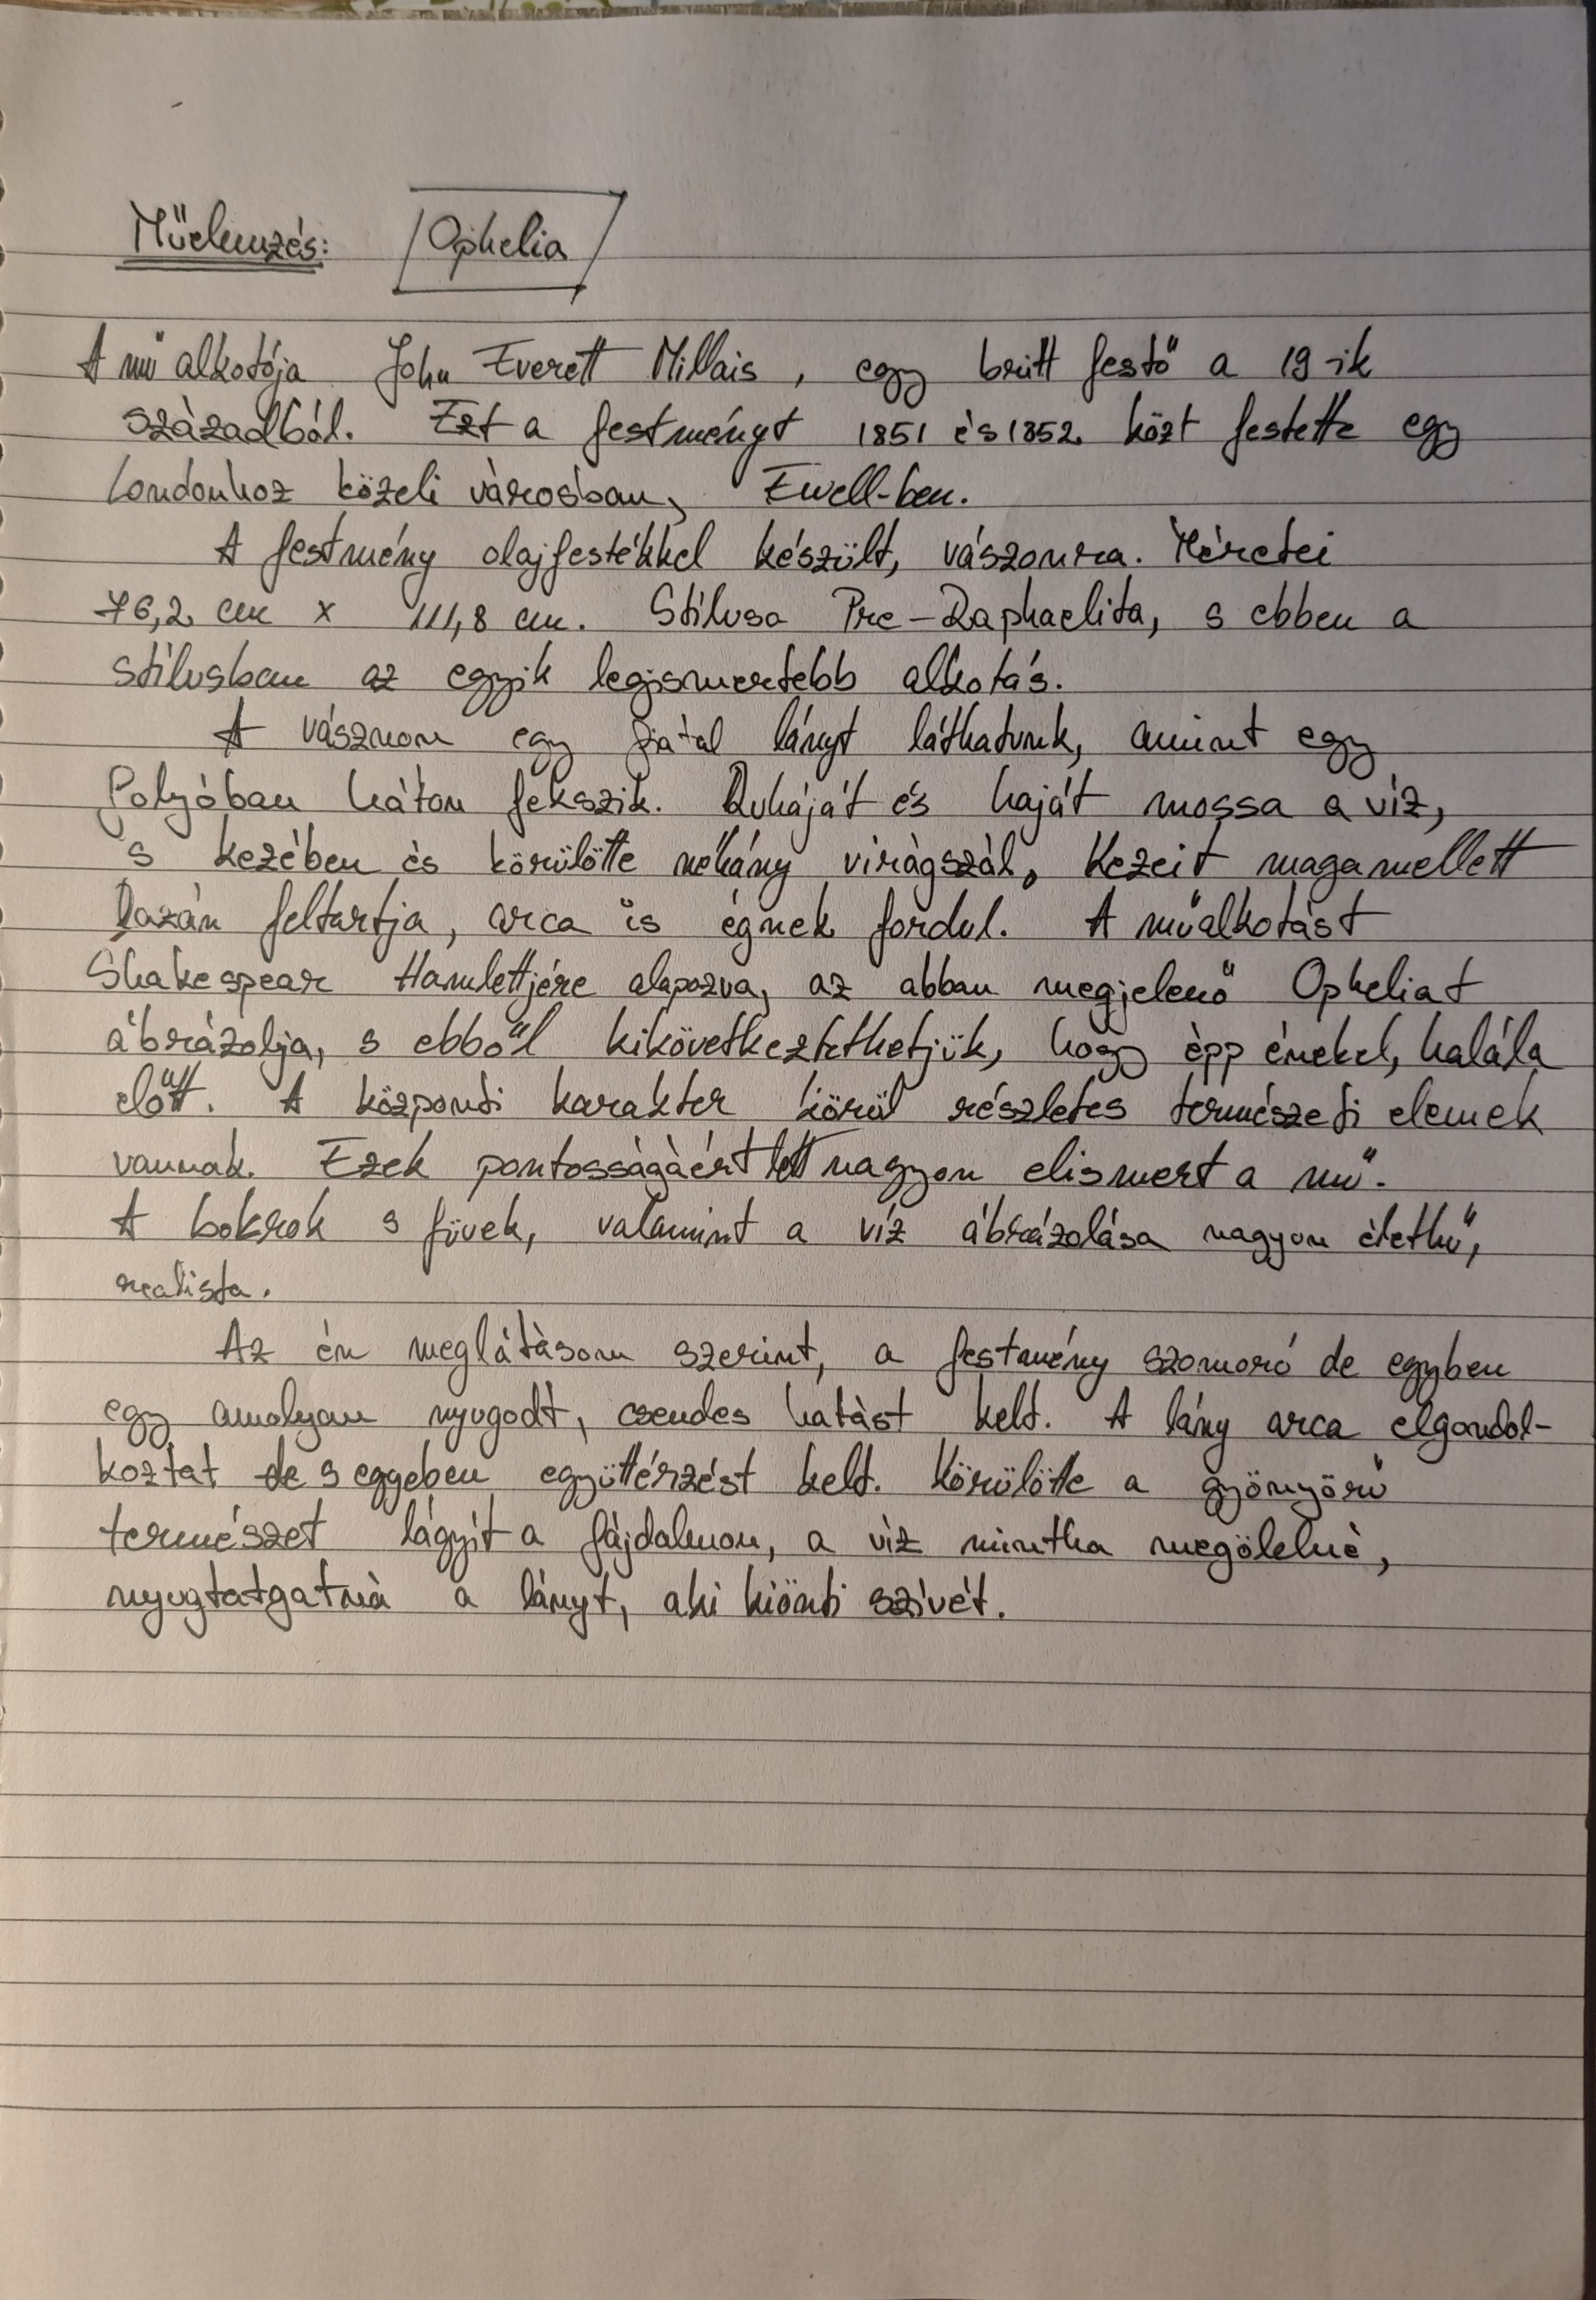 Műelemzés: Ophelia
A mű alkotója John Everett Millais, egy britt festő a 19-ik
századból. Ezt a festményt 1851 és 1852 közt festette egy
Londonhoz közeli városban, Ewell-ben.
A festmény olajfestékkel készült, vászonra. Méretei
76,2 cm x 111,8 cm. Stílusa Pre-Raphaelita, s ebben a
stílusban az egyik legismertebb alkotás.
A vásznon egy fiatal lányt láthatunk, amint egy
folyóban háton fekszik. Ruháját és haját mossa a víz,
s kezében és körülötte néhány virágszál. Kezeit maga mellett
lazán feltartja, arca is égnek fordul. A műalkotást
Shakespear Hamlettjére alapozva, az abban megjelenő Opheliat
ábrázolja, s ebből kikövetkeztethetjük, hogy épp énekel, halála
előtt. A központi karakter körül részletes természeti elemek
vannak. Ezek pontosságáért lett nagyon elismert a mű.
A bokrok s füvek, valamint a víz ábrázolása nagyon élethű,
realista.
Az én meglátásom szerint, a festmény szomorú de egyben
egy amolyan nyugodt, csendes hatást kelt. A lány arca elgondol-
koztat s eggeben együttérzést kelt. Körülötte a gyönyörű
természet lágyít a fájdalmon, a víz mintha megölelné,
nyugtatgatná a lányt, aki kiönti szívét.